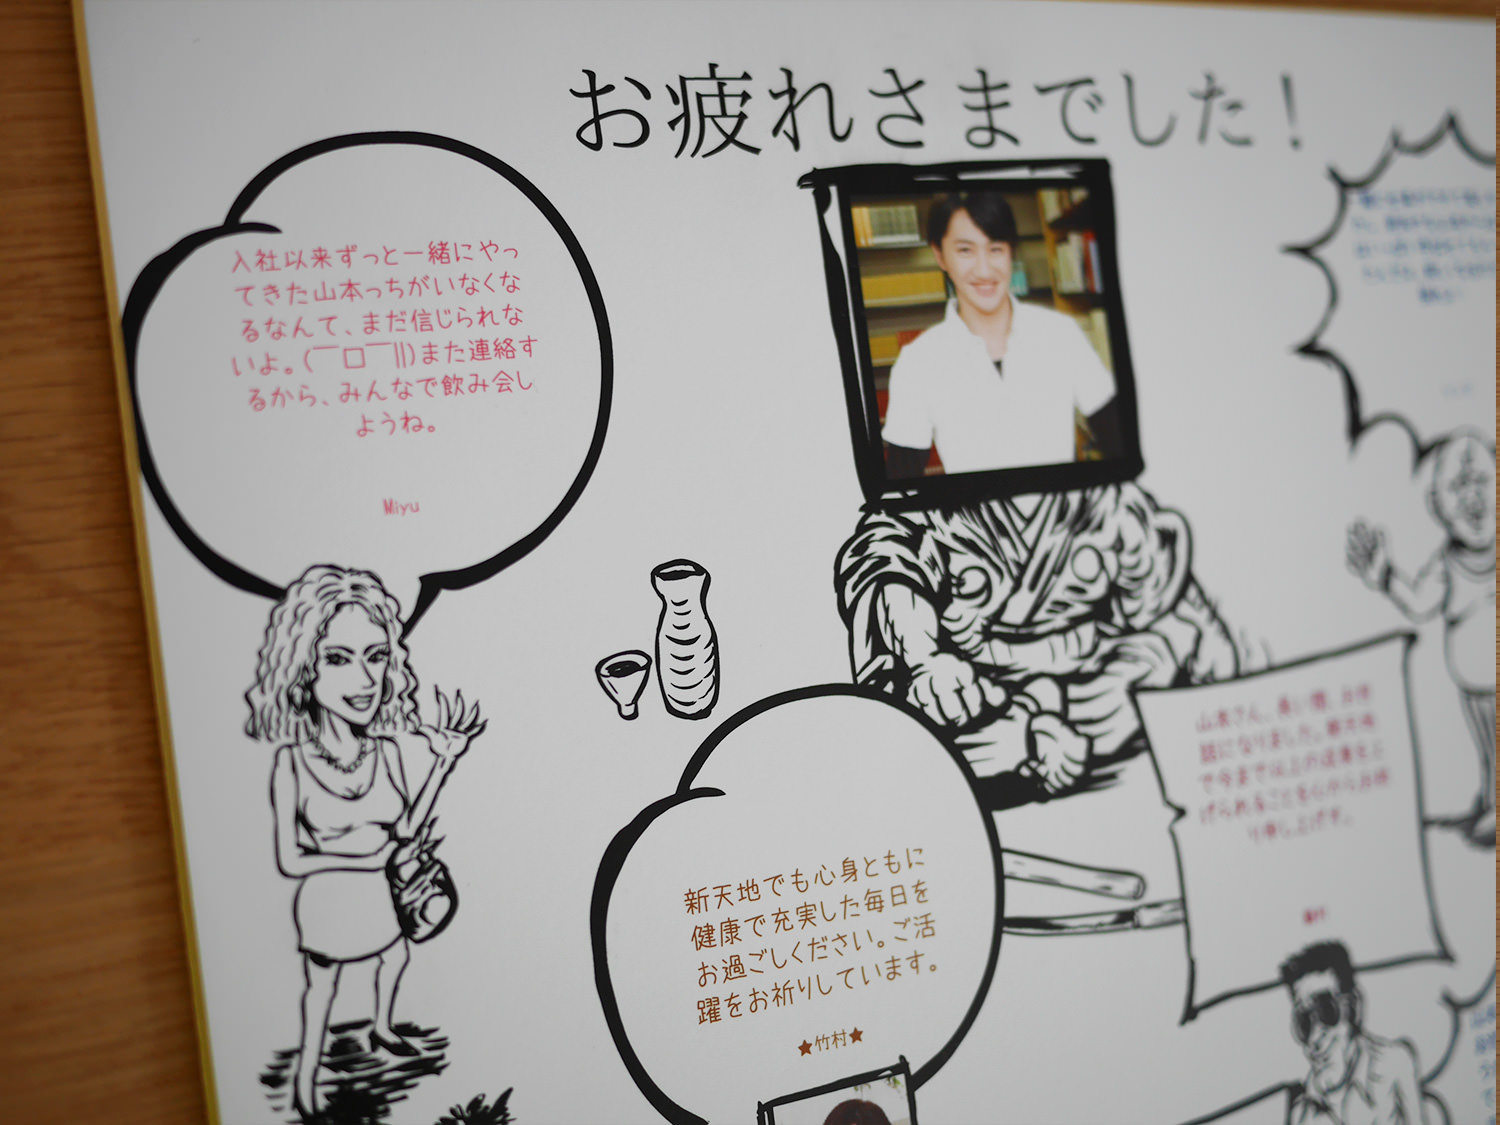 お疲れさまでした!
入社以来ずっと一緒にやっ
てきた山本っちがいなくな
るなんて、まだ信じられな
いよ。(￣□￣||)また連絡す
るから、みんなで飲み会し
ようね。
Miyu
新天地でも心身ともに
健康で充実した毎日を
お過ごしください。ご活
躍をお祈りしています。
★竹村★
山本さん、長い間、お世
話になりました。新天地
で今まで以上の成果を上
げられることを心からお祈
り申し上げます。